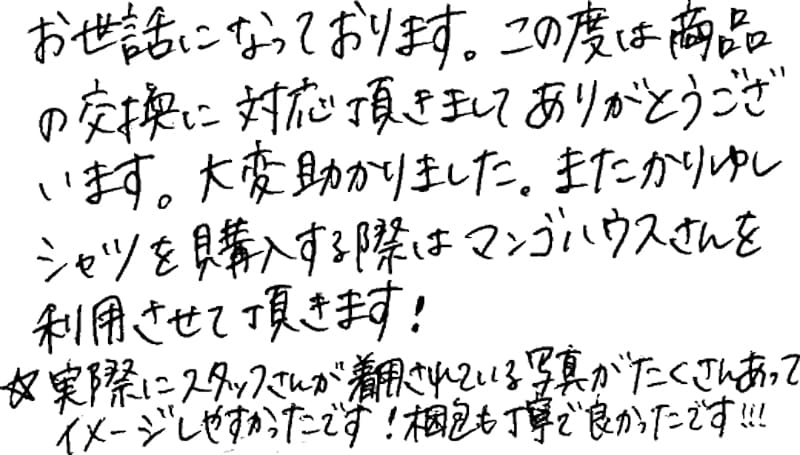 お世話になっております。この度は商品
の交換に対応頂きましてありがとうござ
います。大変助かりました。またかりゆし
シャツを購入する際はマンゴハウスさんを
利用させて頂きます！
☆実際にスタッフさんが着用されている写真がたくさんあって
イメージしやすかったです！梱包も丁寧で良かったです!!!